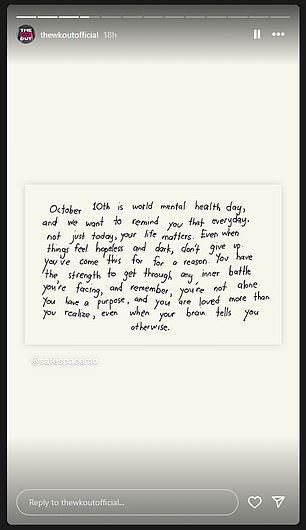 THE
OUT
thewkoutofficial 18h
October 10th is world mental health day,
and we want to remind you that everyday.
not just today, your life matters. Even when
things feel hopeless and dark, don't give up
you've come this for for a reason. You have
the strength to get through any inner battle
you're facing, and remember, you're not alone
You have a purpose, and you are loved more than
you realize, even when your brain tells you
otherwise.
Reply to thewkoutofficial...